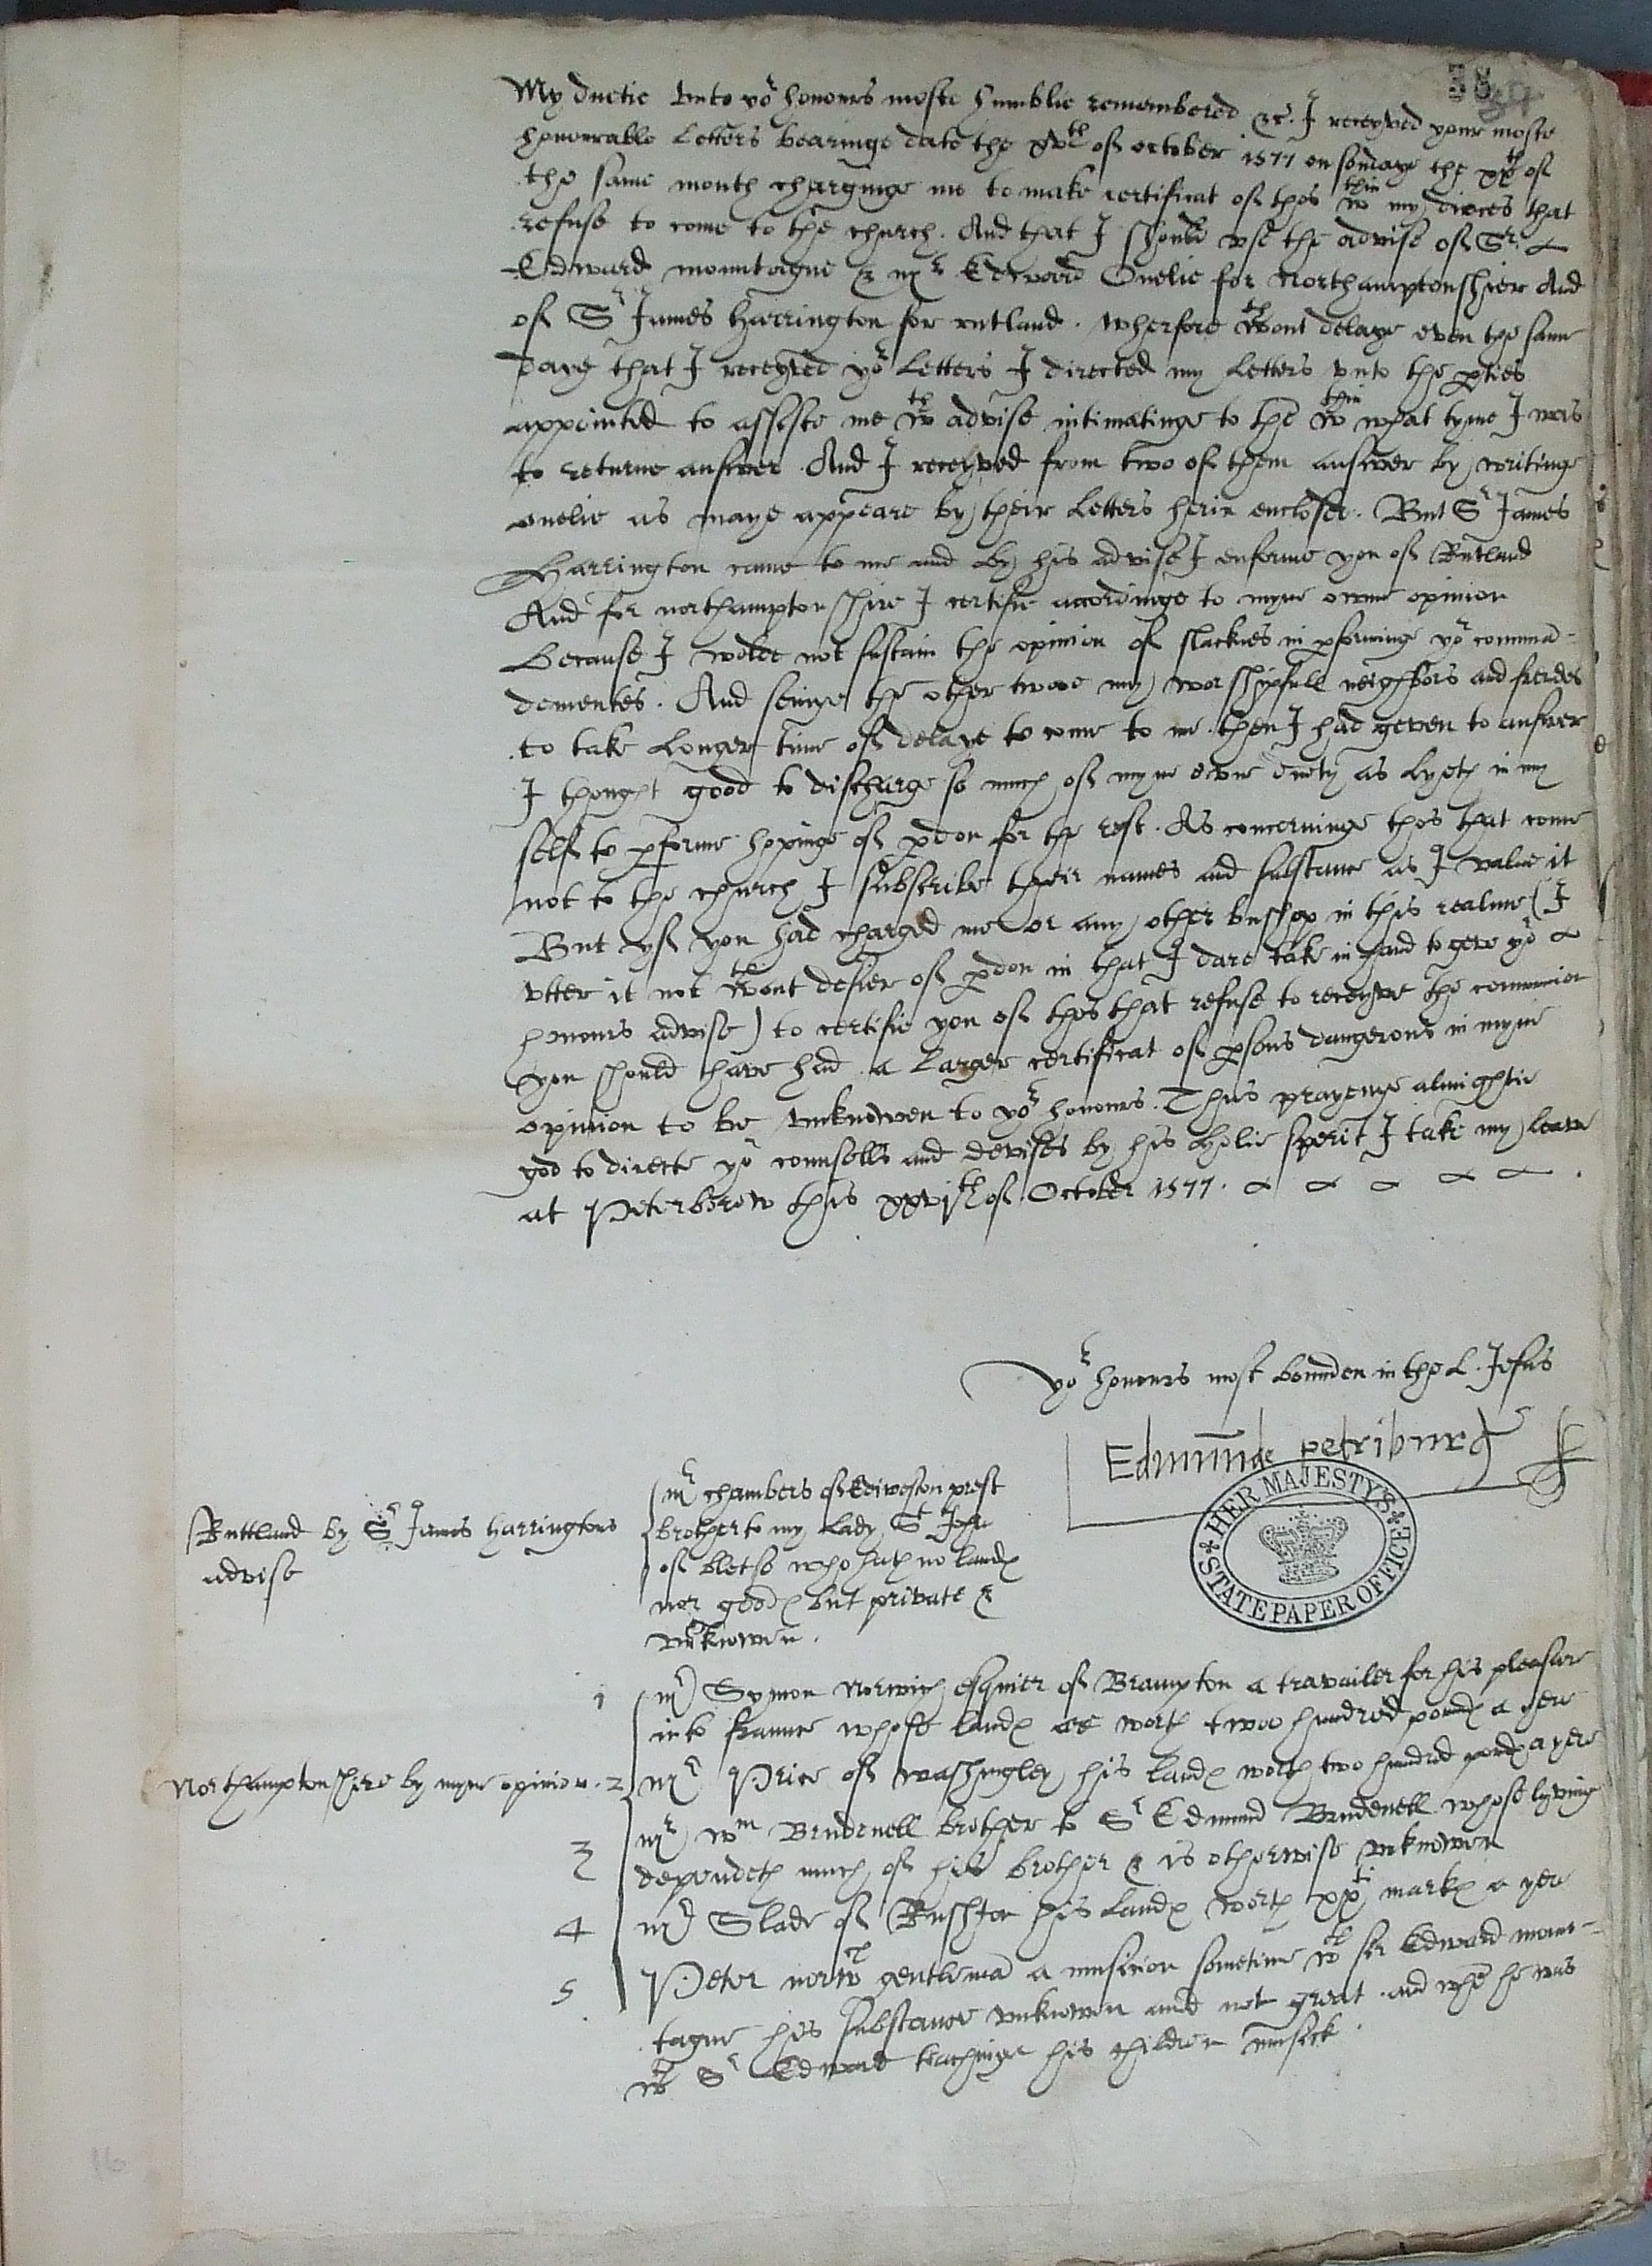 38
37
My duetie unto yor honours moste humblie remembered &c. I receyved your moste
honourable Letters bearinge date the xvth of october 1577 on sondaye the xxth of
the same month charginge me to make certificat of thos wthin my dioces that
refuse to come to the church. And that I should use the advise of Sr.
Edward mountague & mr Edward Onelie for Northamptonshier And
of Sr James Harrington for rutland. Wherfore wthout delaye even the same
daye that I receyved yor Letters I directed my Letters unto the pties
appointed to assiste me wth advise intimatinge to the wthin what tyme I was
to returne answer. And I receyved from two of them answer by writinge
onelie as maye appeare by their Letters herin enclosed. But Sr James
Harrington came to me and by his advise I enforme you of Rutland
And for northamptonshire I certifie accordinge to myne owne opinion
because I wolde not sustain the opinion of slacknes in pforminge yor comma-
dementes. And seinge the other twoe my worshipfull neighbors and frendes
to take longer time of delaye to come to me then I had geven to answer
I thought good to discharge so much of myne owne duety as lyeth in my
self to pforme hopinge of pdon for the rest. As concerninge thos that come
not to the church I subscribe their names and substance as I value it
But yf you had charged me or any other busshop in this realme (I
utter it not wthout desier of pdon in that I dare take in hand to geve yor
honours advise) to certifie you of thos that refuse to receyve the comunion
you should have had a larger certificat of psons dangerous in myne
opinion to be unknowen to yor honours. Thus prayenge almightie
god to directe yor counsells and devises by his holie sperit I take my leave
at Peterborow this xxvith of October 1577.
yor honours most bounden in the L. Jesus
Edmunde petriburg
HER MAJESTY'S STATE PAPER OFFICE
Ruttland by Sr James Harringtons
advise
mr chambers of Ediweston prest
brother to my Lady St John
of bletso who hath no landes
nor goodes but private &
unknowen.
1 mr Symon Norwich esquier of Brampton a travailer for his pleasure
into fraunce whose landes are worth twoo hundred poundes a yere
Northamptonshire by myne opinion. 2 mr Price of washingley his landes worth two hundred poundes a yere
3 mr wm Brudenell brother to Sr Edmund Brudenell whose lyving
dependeth much of his brother & is otherwise unknowen
4 mr Slade of Rushton his landes worth xxti markes a yere
5 Peter norwch gentlema a musicion sometime wth sir Edward moun-
tague his substance unknowen and not great. and whe he was
wth Sr Edward teachinge his children musick.
16